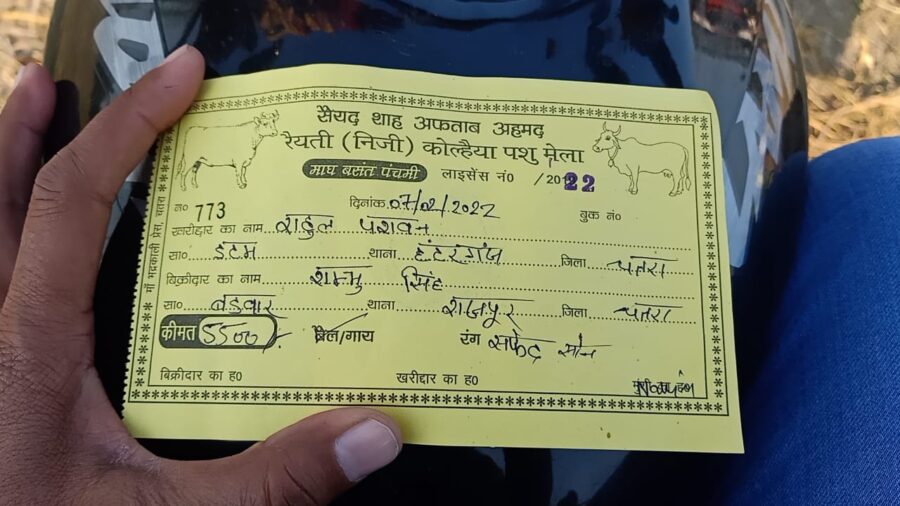 सैयद शाह अफताब अहमद
रैयती (निजी) कोल्हैया पशु मेला
माघ बसंत पंचमी लाइसेंस नं0 /2022
न० 773 दिनांक 07/02/2022 बुक नं०
खरीद्दार का नाम राहुल पासवान
सा० डटम थाना हंटरगंज जिला चतरा
बिक्रीदार का नाम शम्भु सिंह
सा० थाना राजपूर जिला चतरा
कीमत 5500/- बैल/गाय रंग सफेद
बिक्रीदार का ह0 खरीद्दार का ह0
माँ भद्रकाली प्रेस, चतरा